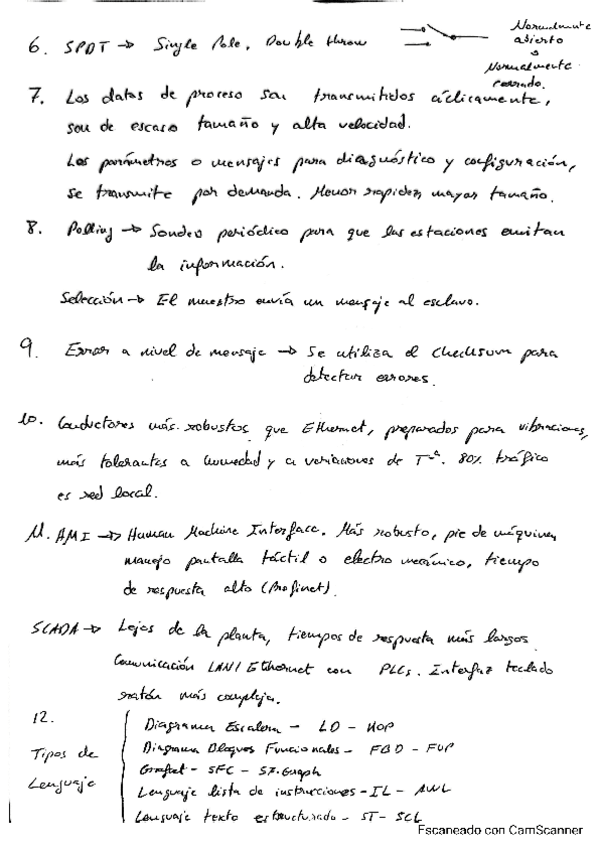 Normalmente
abierto
o
Normalmente
cerrado.
6. SPDT → Single Pole, Double throw
7. Los datos de proceso son transmitidos cíclicamente,
son de escaso tamaño y alta velocidad.
Los parámetros o mensajes para diagnóstico y configuración,
se transmite por demanda. Menor rapidez mayor tamaño.
8. Polling → Sondeo periódico para que las estaciones emitan
la información.
Selección → El maestro envía un mensaje al esclavo.
9. Error a nivel de mensaje → Se utiliza el checksum para
detectar errores.
10. Conductores más robustos que Ethernet, preparados para vibraciones,
más tolerantes a humedad y a variaciones de Tª. 80% tráfico
es red local.
11. HMI → Human Machine Interface. Más robusto, pie de máquina,
manejo pantalla táctil o electro mecánico, tiempo
de respuesta alto (Profinet).
SCADA → Lejos de la planta, tiempos de respuesta más largos
Comunicación LAN/Ethernet con PLCs. Interfaz teclado
ratón más compleja.
12.
Tipos de
Lenguaje
Diagrama Escalera - LD - KOP
Diagrama Bloques Funcionales - FBD - FUP
Grafcet - SFC - S7.Graph
Lenguaje lista de instrucciones - IL - AWL
Lenguaje texto estructurado - ST - SCL
Escaneado con CamScanner